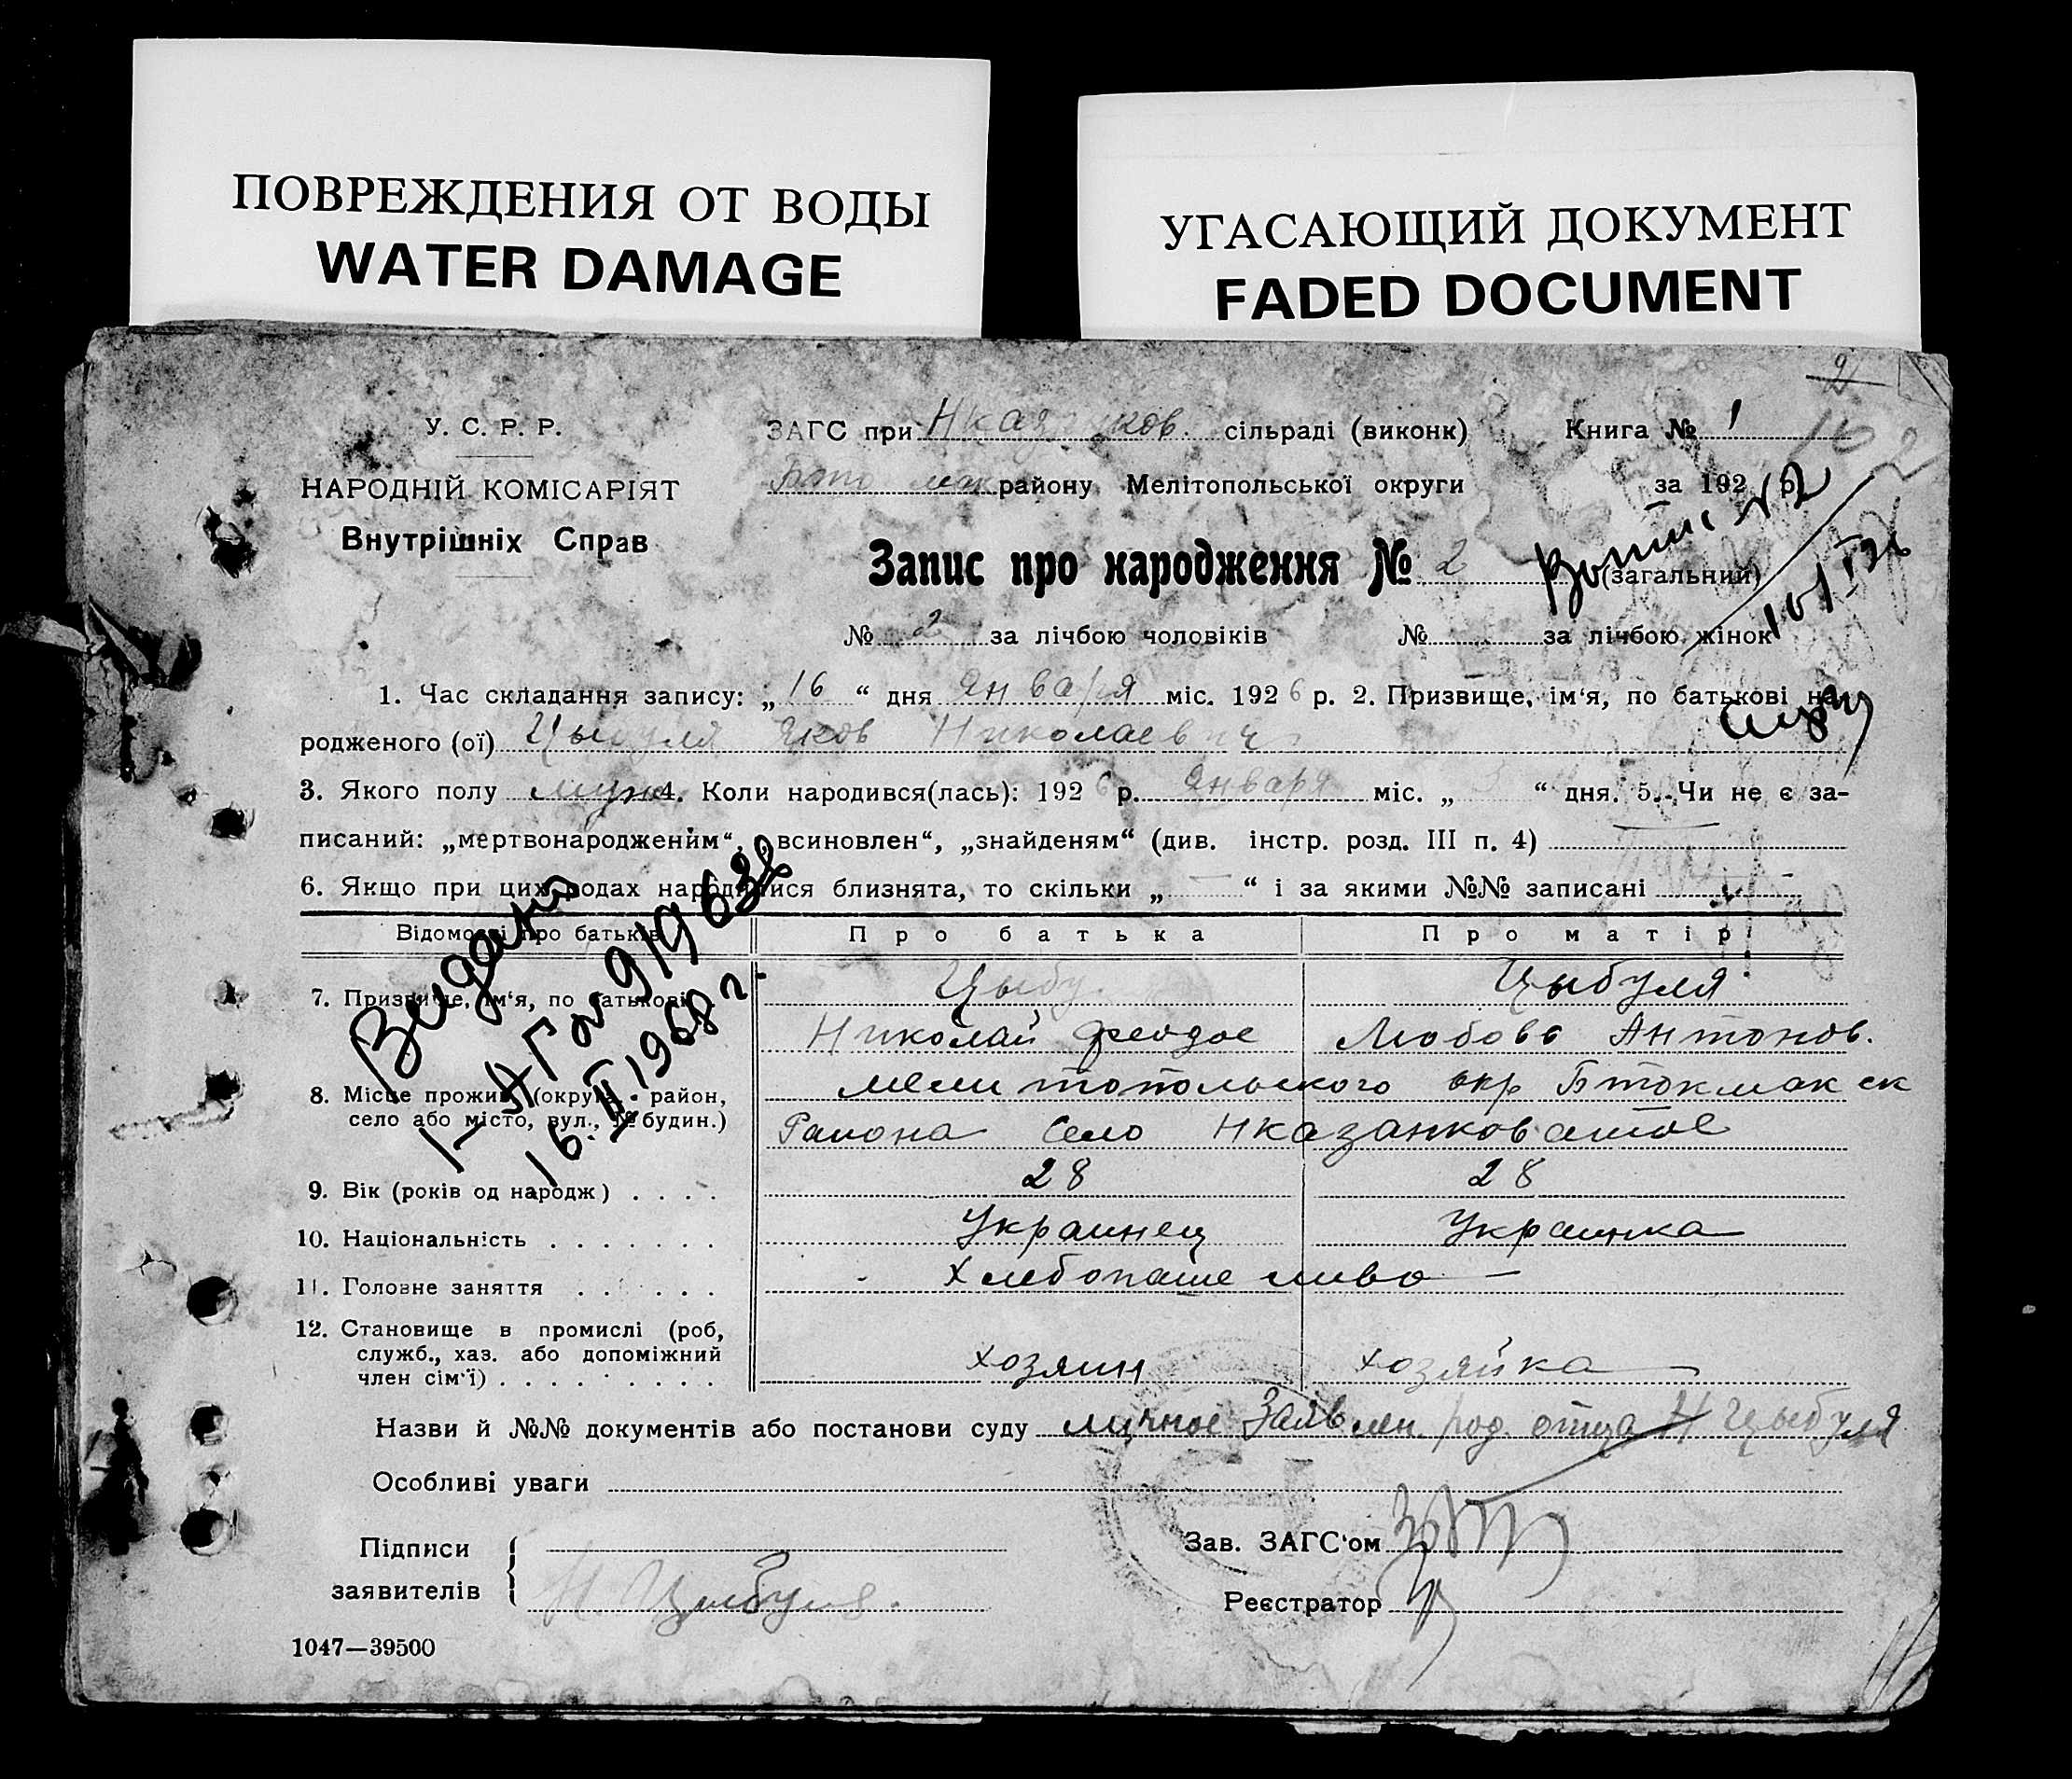 ПОВРЕЖДЕНИЯ ОТ ВОДЫ
WATER DAMAGE
УГАСАЮЩИЙ ДОКУМЕНТ
FADED DOCUMENT
2
У. С. Р. Р.
НАРОДНІЙ КОМІСАРІЯТ
Внутрішніх Справ
ЗАГС при сільраді (виконк) Книга № 1
району Мелітопольської округи за 192 р.
Запис про народження № 2 (загальний)
№ 2 за лічбою чоловіків № за лічбою жінок
1. Час складання запису: „16“ дня Января міс. 1926 р. 2. Призвище, ім‘я, по батькові на-
родженого (ої) Цыбуля Яков Николаевич
3. Якого полу муж 4. Коли народився(лась): 1926 р. Января міс. „ “ дня. 5. Чи не є за-
писаний: „мертвонародженим“, „всиновлен“, „знайденям“ (див. інстр. розд. III п. 4)
6. Якщо при цих родах народилися близнята, то скільки „ — “ і за якими №№ записані
Відомості про батьків Про батька Про матір
7. Призвище, ім‘я, по батькові Цыбу Цыбуля
Николай Феодос Любовь Антонов.
8. Місце прожив. (округа, район, село або місто, вул., № будин.) Мелитопольского окр Бтокмакск
Района село Нказанковатое
9. Вік (років од народж) 28 28
10. Національність Украинец Украинка
11. Головне заняття Хлебопашество
12. Становище в промислі (роб, служб., хаз. або допоміжний член сім‘ї) хозяин хозяйка
Назви й №№ документів або постанови суду личное Заявлен. род. отца Н Цыбуля
Особливі уваги
Підписи
заявителів Н. Цыбуля.
Зав. ЗАГС‘ом
Реєстратор
1047—39500
16.II 1968 г.